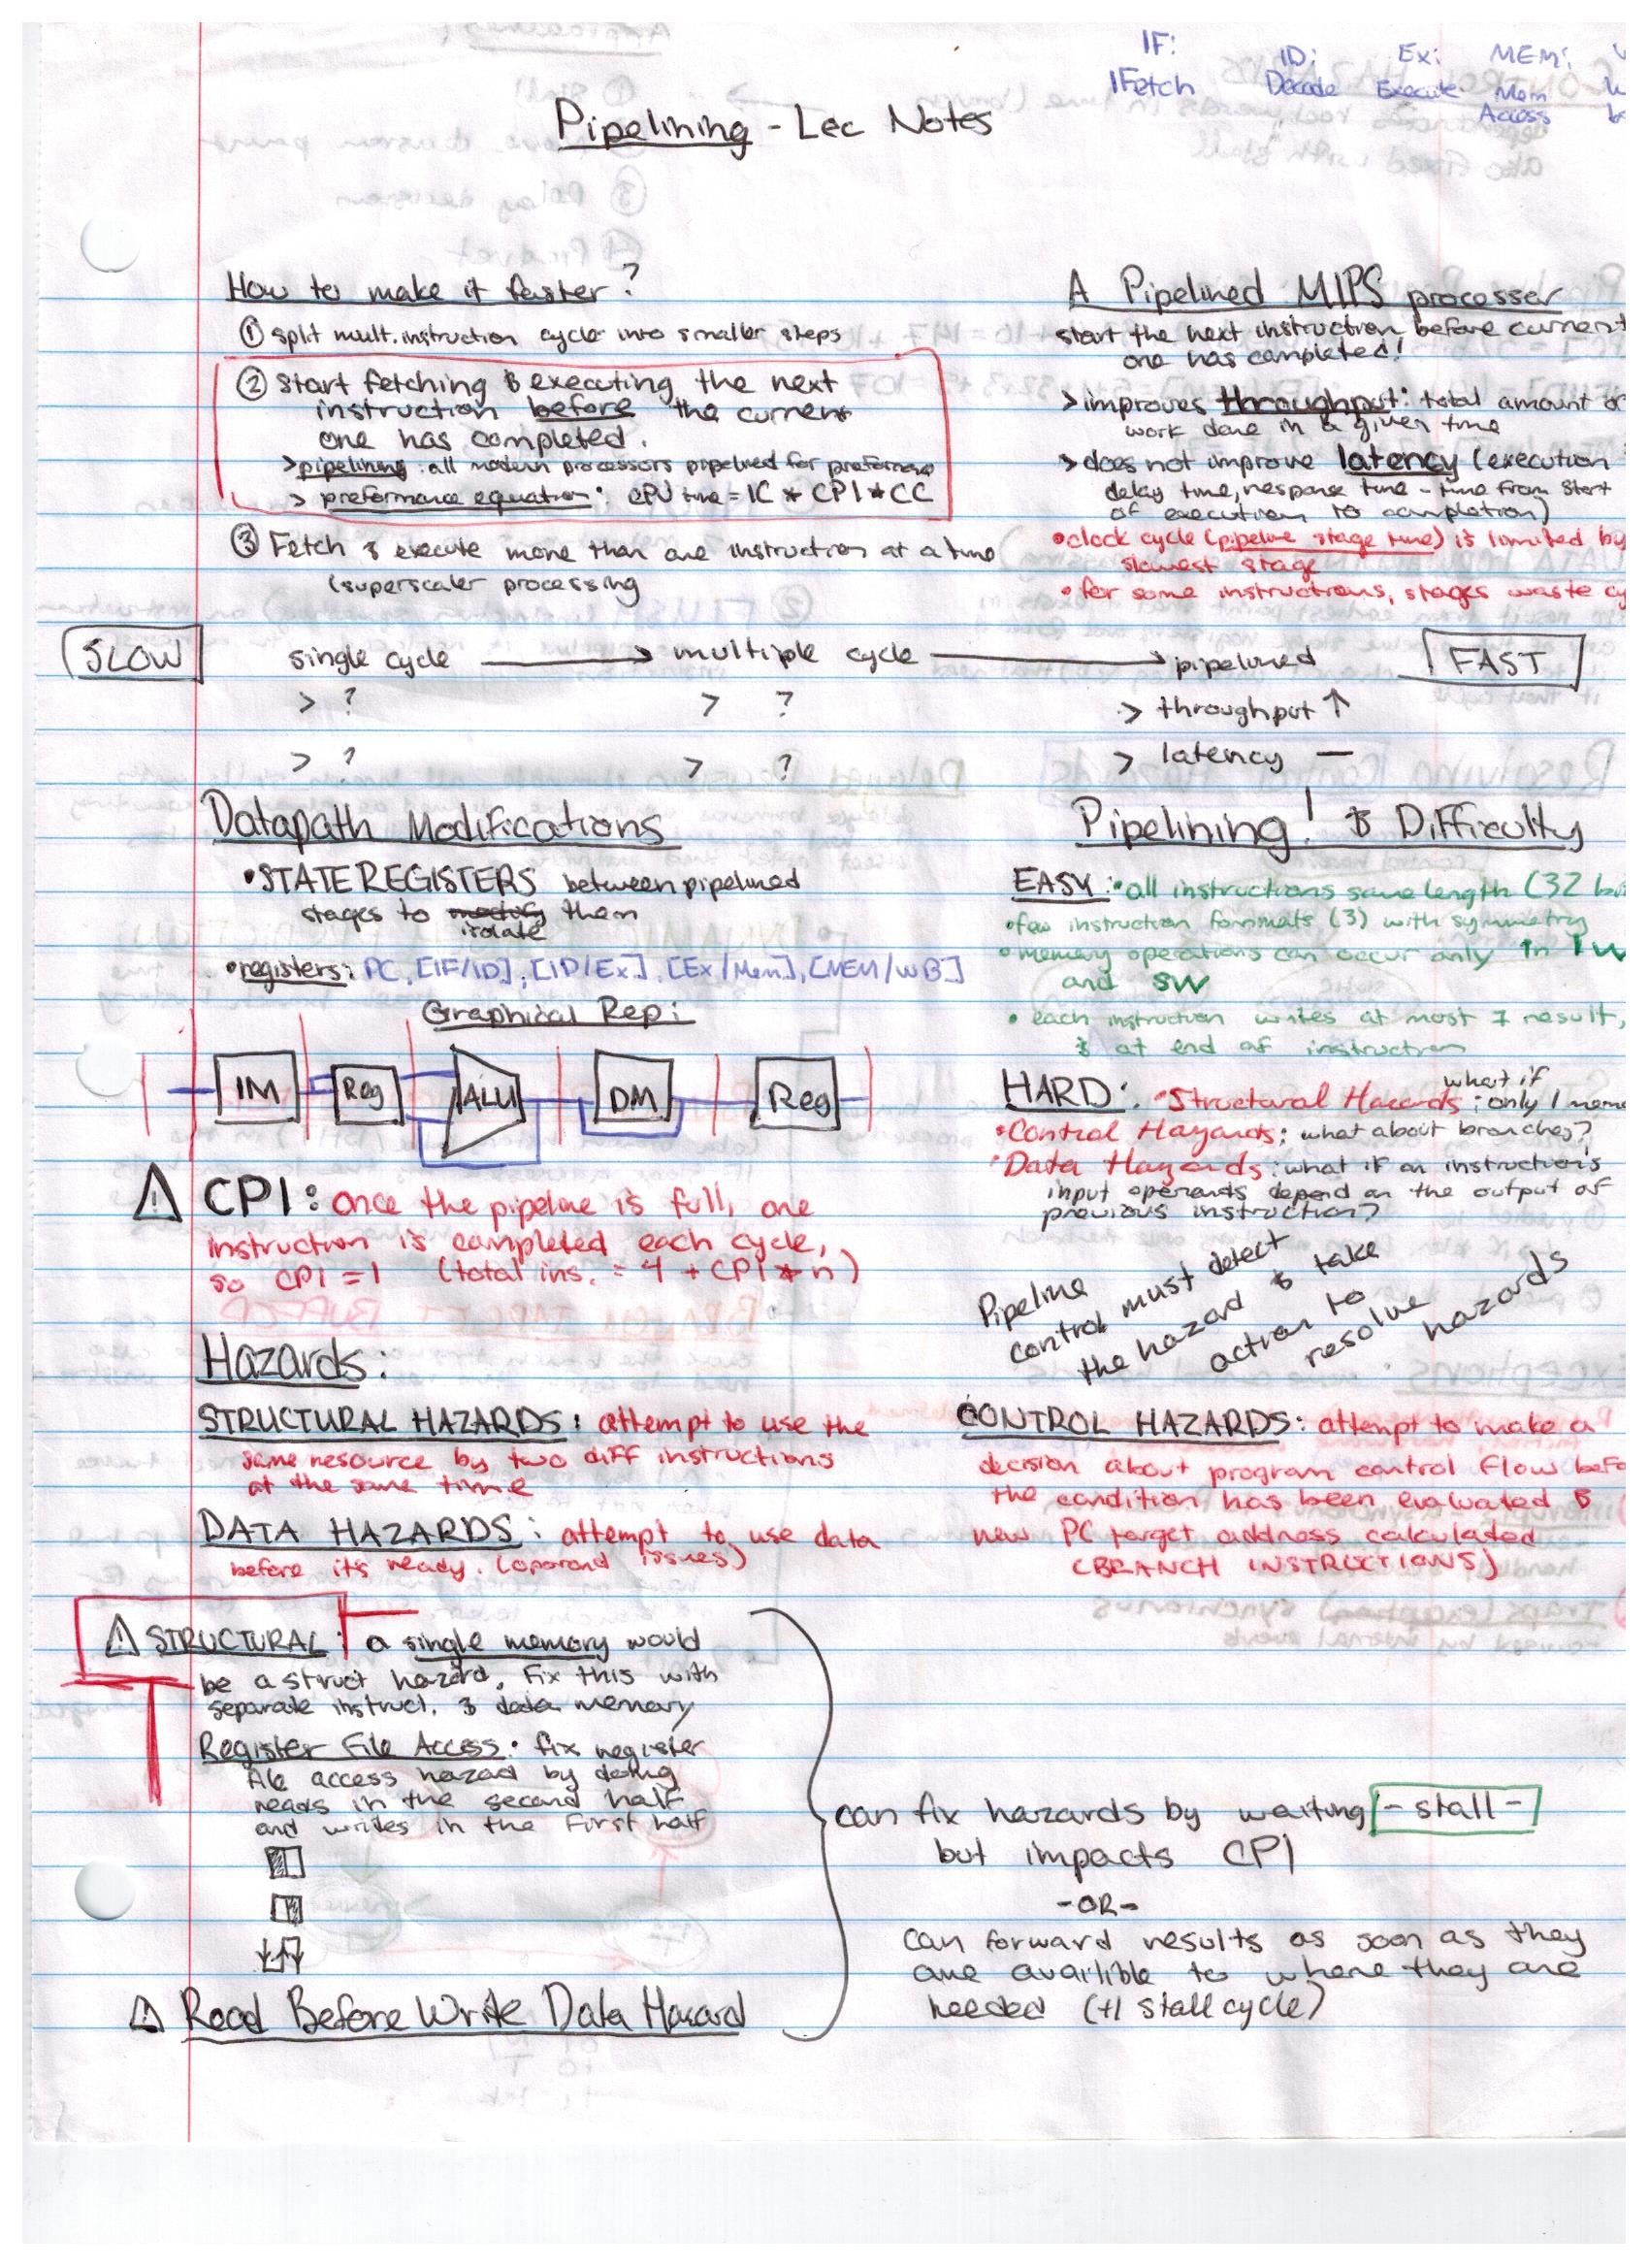 IF:
IFetch
ID:
Decode
Ex:
Execute
MEM:
Mem
Access
Pipelining - Lec Notes
How to make it faster?
① split mult. instruction cycle into smaller steps
② Start fetching & executing the next
instruction before the current
one has completed.
> pipelining: all modern processors pipelined for preformance
> preformance equation: CPU time = IC * CPI * CC
③ Fetch & execute more than one instruction at a time
(superscaler processing
A Pipelined MIPS processer
start the next instruction before current
one has completed!
> improves throughput: total amount of
work done in a given time
> does not improve latency (execution
delay time, response time - time from start
of execution to completion)
• clock cycle (pipeline stage time) is limited by
slowest stage
• for some instructions, stages waste cy
SLOW single cycle → multiple cycle → pipelined FAST
> ? > ? > throughput ↑
> ? > ? > latency —
Datapath Modifications
• STATE REGISTERS between pipelined
stages to modify them
isolate
• registers: PC, [IF/ID], [ID/Ex], [Ex/Mem], [MEM/WB]
Graphical Rep:
IM Reg ALU DM Reg
⚠ CPI: once the pipeline is full, one
instruction is completed each cycle,
so CPI = 1 (total ins. = 4 + CPI * n)
Pipelining! & Difficulty
EASY: • all instructions same length (32 bi
• few instruction formats (3) with symmetry
• memory operations can occur only in lw
and sw
• each instruction writes at most 1 result,
& at end of instruction
HARD: • Structural Hazards: what if only 1 mem
• Control Hazards: what about branches?
• Data Hazards: what if an instruction's
input operands depend on the output of
previous instruction?
Pipeline
control must detect
the hazard & take
action to
resolve hazards
Hazards:
STRUCTURAL HAZARDS: attempt to use the
same resource by two diff instructions
at the same time
DATA HAZARDS: attempt to use data
before it's ready. (oporand issues)
CONTROL HAZARDS: attempt to make a
decision about program control flow befo
the condition has been evaluated &
new PC target address calculated
(BRANCH INSTRUCTIONS)
⚠ STRUCTURAL: a single memory would
be a struct hazard, Fix this with
separate instruct. & data memory
Register File Access: fix register
file access hazad by doing
reads in the second half
and writes in the first half
⚠ Read Before Write Data Hazard
can fix hazards by waiting - stall -
but impacts CPI
- OR -
can forward results as soon as they
are availible to where they are
needed (+1 stall cycle)